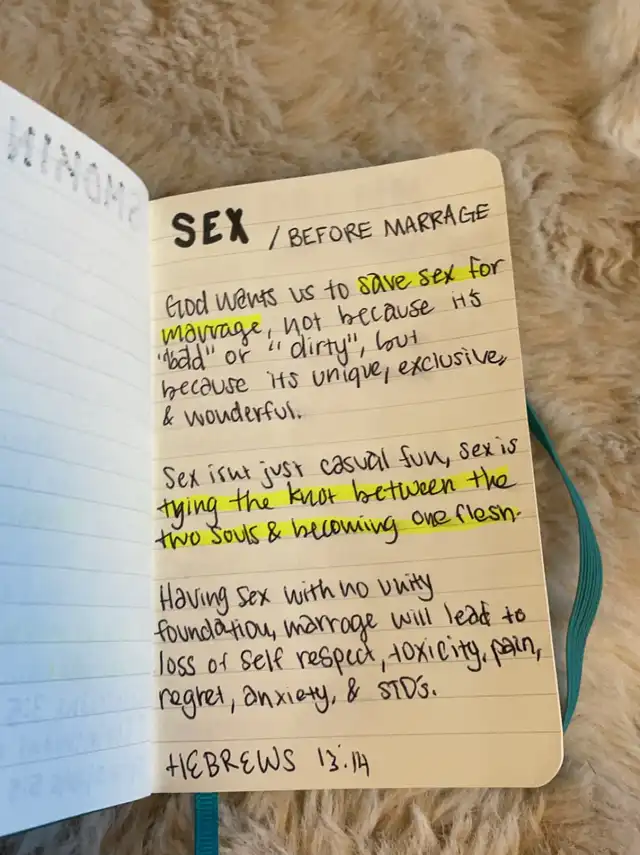 SEX / BEFORE MARRAGE
God wants us to save sex for
marrage, not because it's
"bad" or "dirty", but
because its unique, exclusive,
& wonderful.
Sex isnt just casual fun, sex is
tying the knot between the
two souls & becoming one flesh.
Having sex with no unity
foundation, marrage will lead to
loss of self respect, toxicity, pain,
regret, anxiety, & STD's.
HEBREWS 13:14